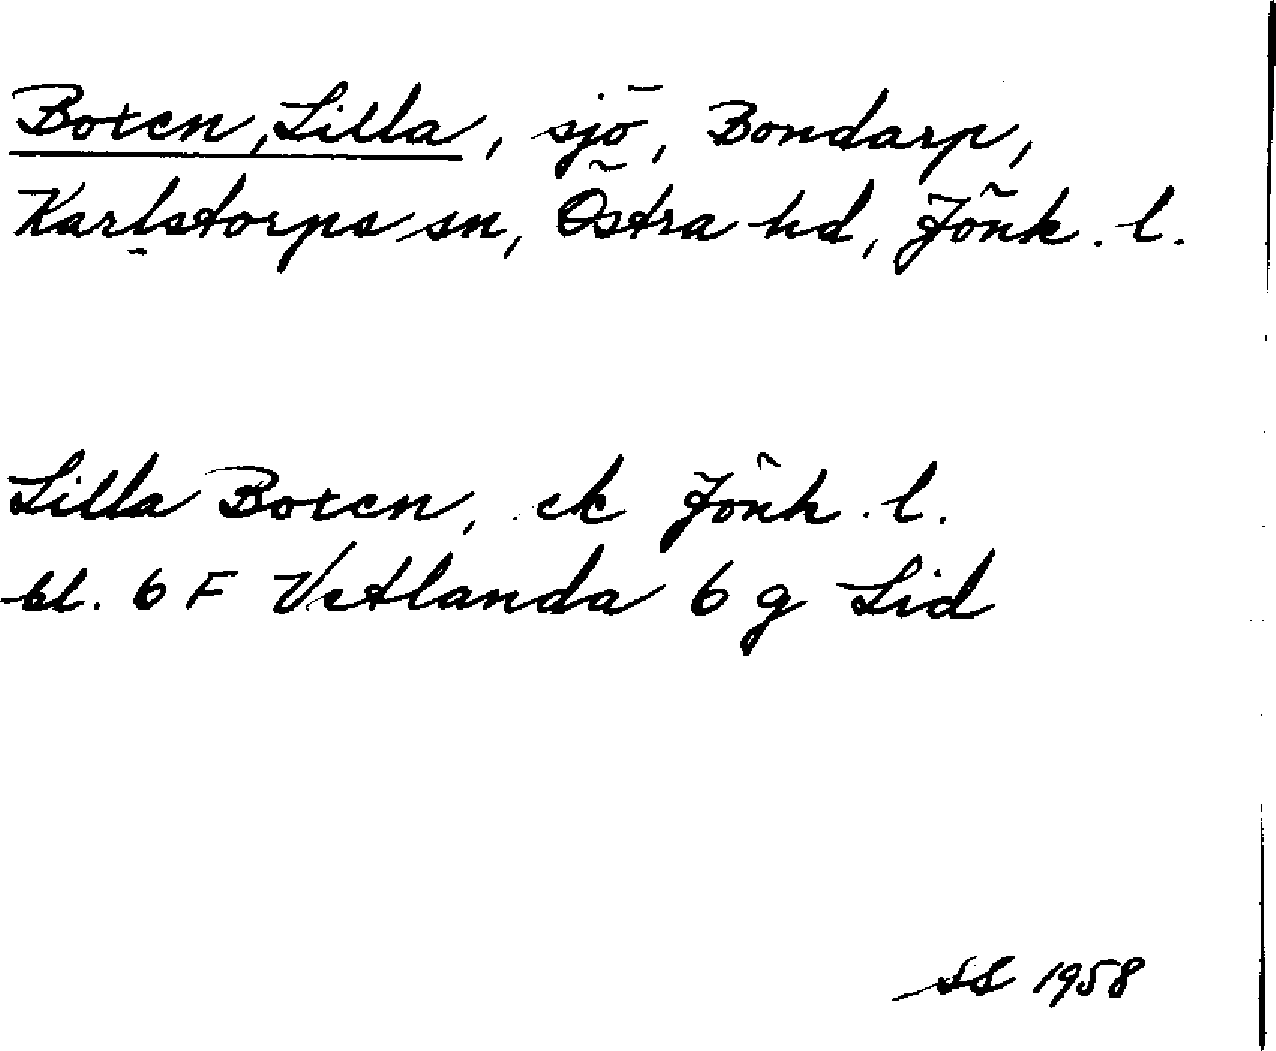 Boxen, Lilla, sjö, Bondarp,
Karlstorps sn, Östra hd, Jönk. l.
Lilla Boxen, ek Jönk. l.
bl. 6 F Vetlanda 6 g Lid
SS 1958